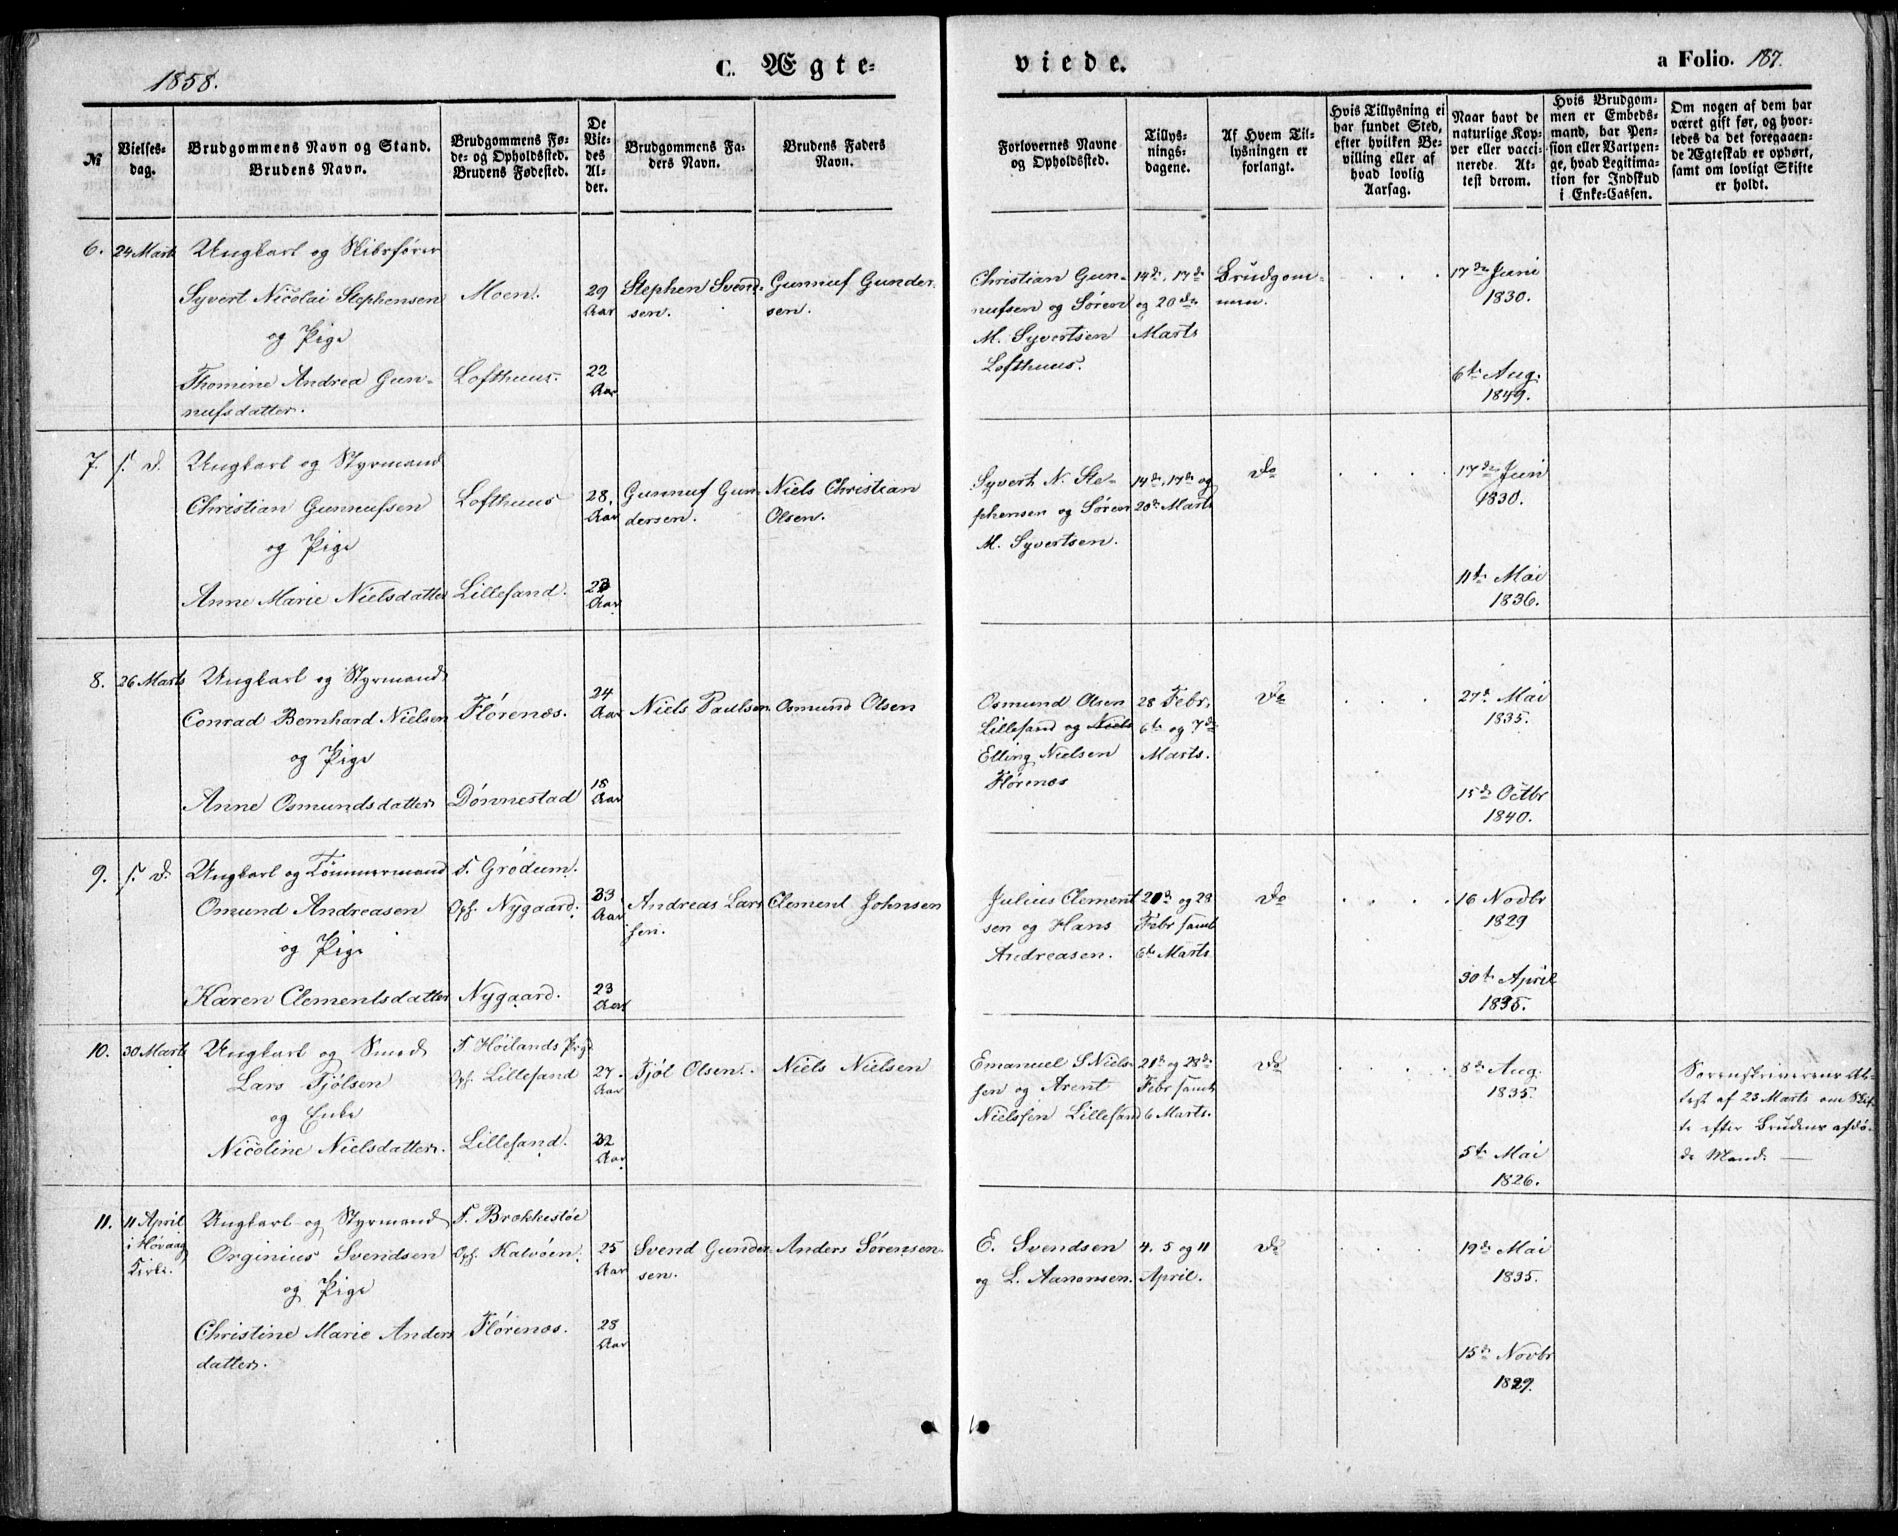 1858.
C. Ægte-
viede.
a Folio. 187.
№
Vielses-
dag.
Brudgommens Navn og Stand.
Brudens Navn.
Brudgommens Fø-
de- og Opholdssted.
Brudens Fødested.
De
Vie-
des
Al-
der.
Brudgommens Fa-
ders Navn.
Brudens Faders
Navn.
Forlovernes Navne
og Opholdssted.
Tillys-
nings-
dagene.
Af Hvem Til-
lysningen er
forlangt.
Hvis Tillysning ei
har fundet Sted,
efter hvilken Be-
villing eller af
hvad lovlig
Aarsag.
Naar havt de
naturlige Kop-
per eller vacci-
nerede. At-
test derom.
Hvis Brudgom-
men er Embeds-
mand, har Pen-
sion eller Vartpen-
ge, hvad Legitima-
tion for Indskud
i Enke-Cassen.
Om nogen af dem har
været gift før, og hvor-
ledes da det foregaaen-
de Ægteskab er ophørt,
samt om lovligt Skifte
er holdt.
6.
24 Marts
Ungkarl og Skibsfører
Syvert Nicolai Stephensen
og Pige
Thomine Andrea Gun-
nufsdatter.
Moen.
Lofthuus.
29
Aar
22
Aar
Stephen Svend-
sen.
Gunnuf Gunder-
sen.
Christian Gun-
nufsen og Søren
M. Syvertsen
Lofthuus.
14de, 17de
og 20de
Marts
Brudgom-
men.
17de Juni
1830.
6te Aug.
1849.
7.
s. D.
Ungkarl og Styrmand
Christian Gunnufsen
og Pige
Anne Marie Nielsdatter
Lofthuus
Lillesand.
28.
Aar
23
Aar
Gunnuf Gun-
dersen.
Niels Christian
Olsen.
Syvert N. Ste-
phensen og Søren
M. Syvertsen.
14de, 17de og
20de Marts
Do
17de Juni
1830.
11te Mai
1836.
8.
26 Marts
Ungkarl og Styrmand
Conrad Bernhard Nielsen
og Pige
Anne Osmundsdatter
Flørenæs.
Dønnestad
24
Aar
18
Aar
Niels Paulsen
Osmund Olsen
Osmund Olsen
Lillesand og Niels
Elling Nielsen
Flørenæs
28 Febr.
6te og 7de
Marts.
Do
27de Mai
1835.
15de Octbr
1840.
9.
s. D.
Ungkarl og Tømmermand
Omund Andreasen
og Pige
Karen Clementsdatter
F. Grødum.
Oph. Nygaard.
Nygaard.
33
Aar
23
Aar
Andreas Lar-
sen.
Clement Johnsen
Julius Clement
sen og Hans
Andreasen.
20de og 28
Febr samt
6te Marts.
Do
16 Novbr
1829
30te April
1835.
10.
30 Marts
Ungkarl og Smed
Lars Tjølsen
og Enke
Nicoline Nielsdatter.
F. Høilands Prgd
Oph. Lillesand
Lillesand.
27.
Aar
32
Aar
Tjøl Olsen.
Niels Nielsen
Emanuel S Niel-
sen og Arent
Nielsen Lillesand
21de og 28de
Febr samt
6 Marts.
Do
8de Aug.
1835.
5te Mai
1826.
Sorenskriverens At-
test af 23 Marts om Skif-
te efter Brudens afdø-
de Mand. —
11.
11 April
i Høvaag
Kirke.
Ungkarl og Styrmand
Orginius Svendsen
og Pige
Christine Marie Anders
datter.
F. Brækkestøe
Oph. Kalvøen.
Flørenæs.
25
Aar
28
Aar
Svend Gunder-
sen.
Anders Sørensen
E. Svendsen
og L. Aanonsen.
4. 5 og 11
April.
Do
19de Mai
1835.
15de Novbr
1829.